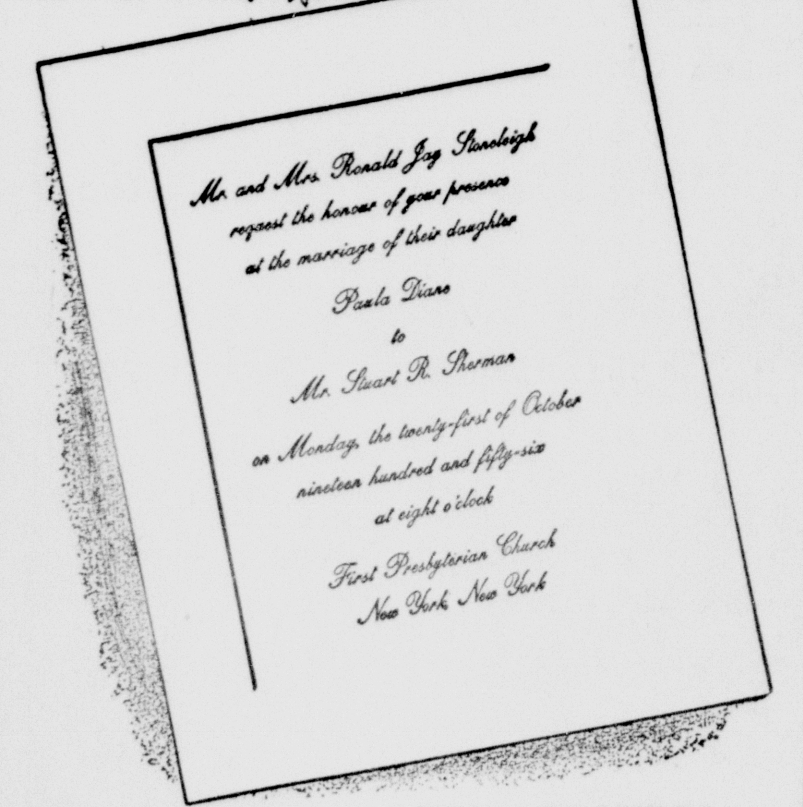 Mr. and Mrs. Ronald Jay Stoneleigh
request the honour of your presence
at the marriage of their daughter
Paula Diane
to
Mr. Stuart R. Sherman
on Monday, the twenty-first of October
nineteen hundred and fifty-six
at eight o'clock
First Presbyterian Church
New York, New York